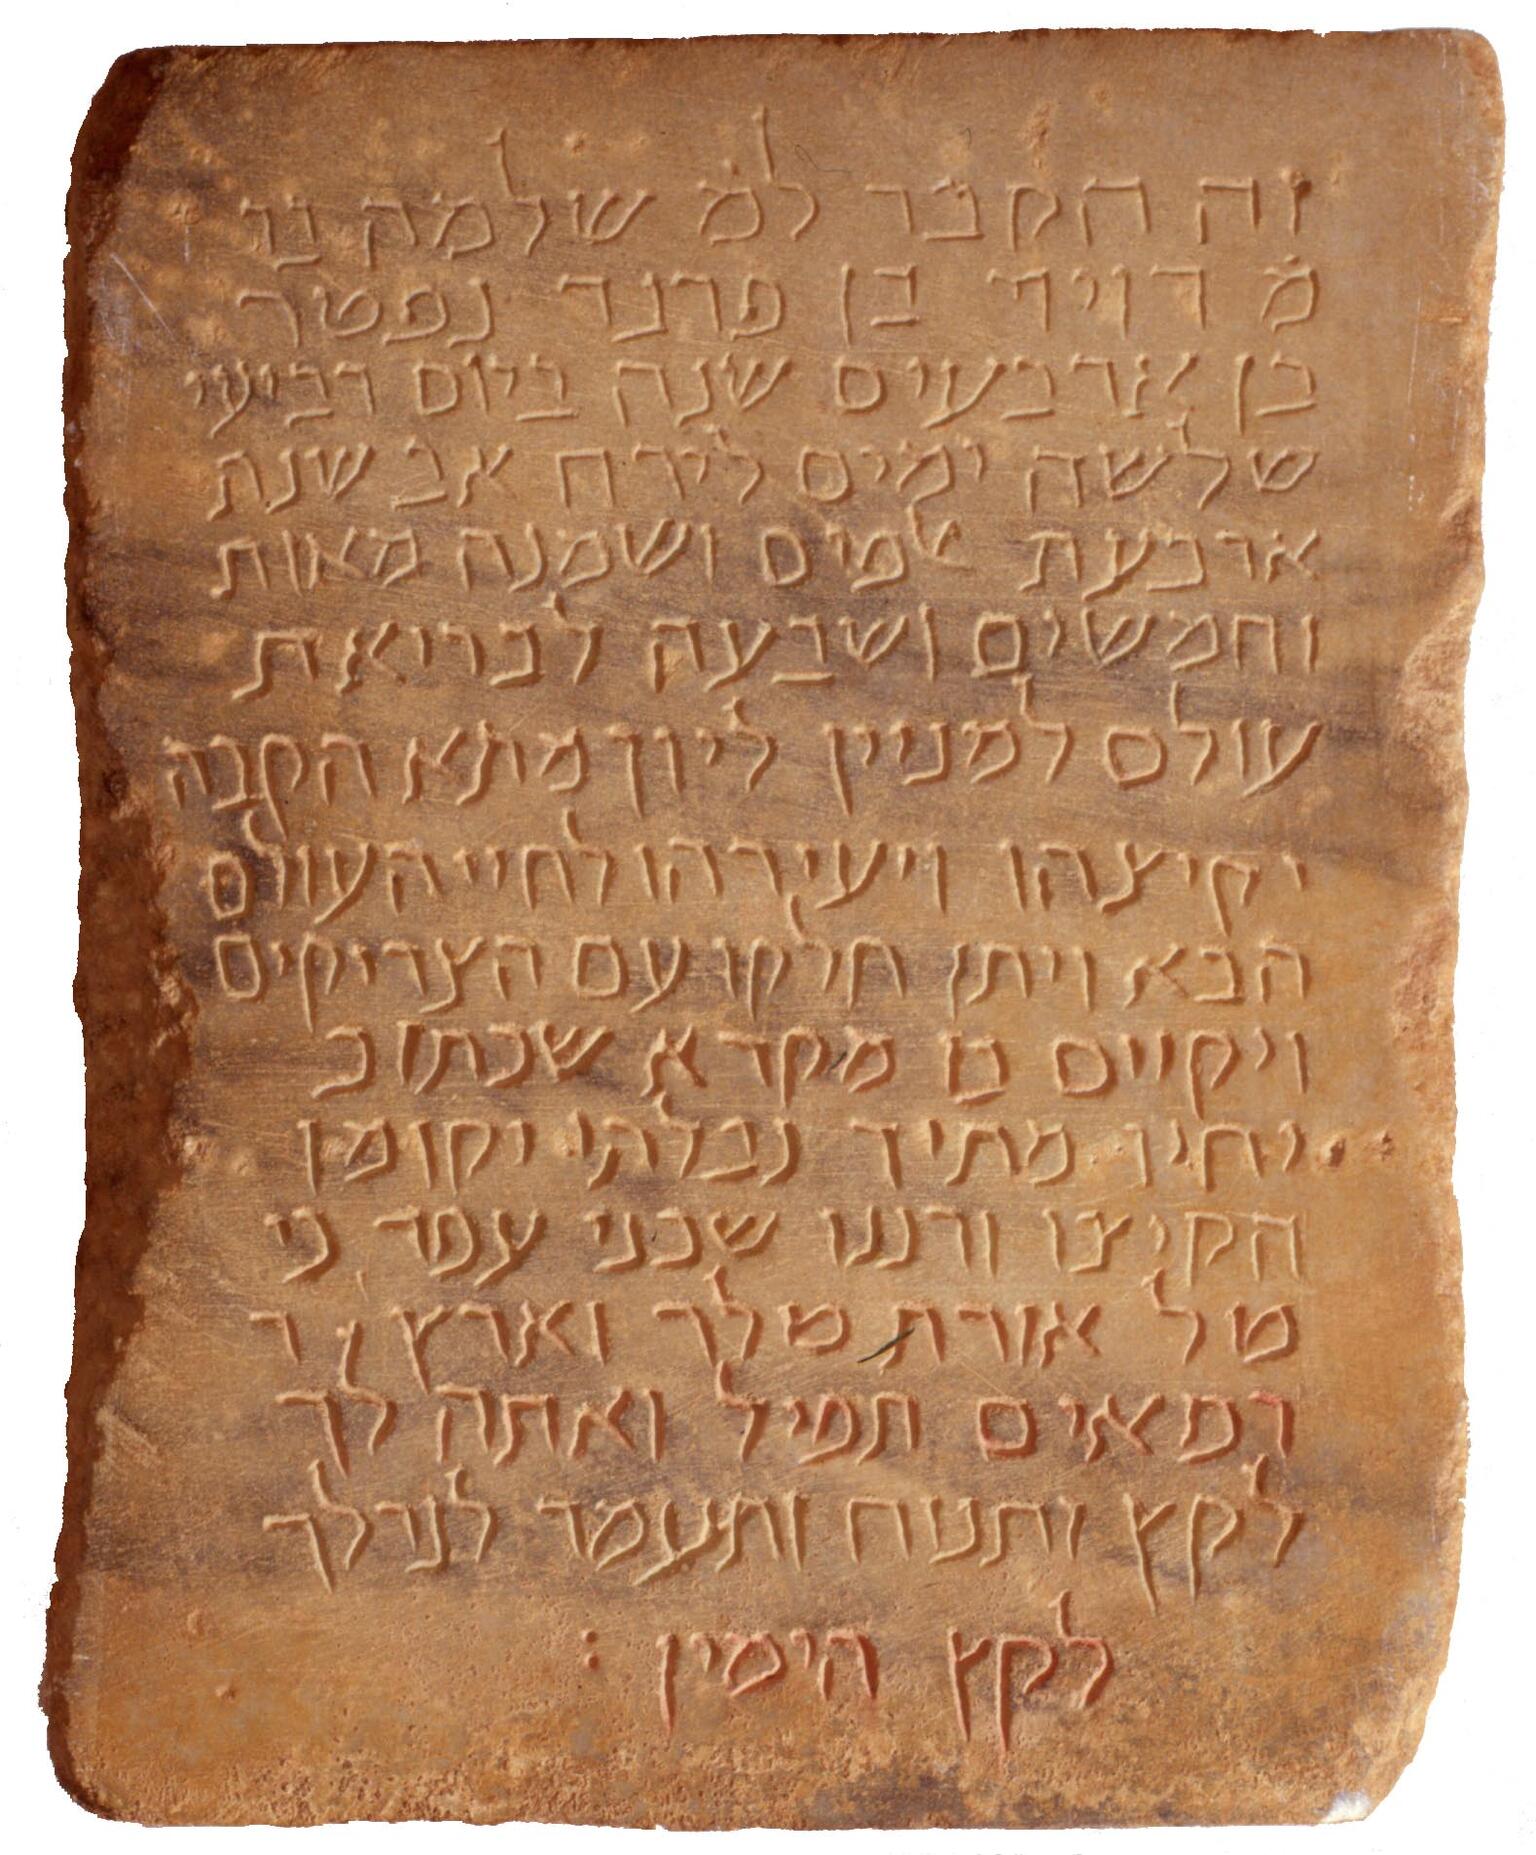 זה הקבר למ שלמה בן
מ דויד בן פרנד נפטר
בן ארבעים שנה ביום רביעי
שלשה ימים לירח אב שנת
ארבעת אלפים ושמנה מאות
וחמשים ושבעה לבריאת
עולם למנין ליון מתא הקבה
יקיצהו ויעירהו לחיי העולם
הבא ויתן חלקו עם הצדיקים
ויקיים בו מקרא שכתוב
יחיו מתיך נבלתי יקומון
הקיצו ורננו שכני עפר כי
טל אורת טלך וארץ
רפאים תפיל ואתה לך
לקץ ותנוח ותעמד לגרלך
לקץ הימין :